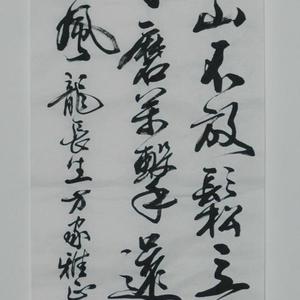 山不放鬆立
磨萬擊還
風龍長生方家雅正